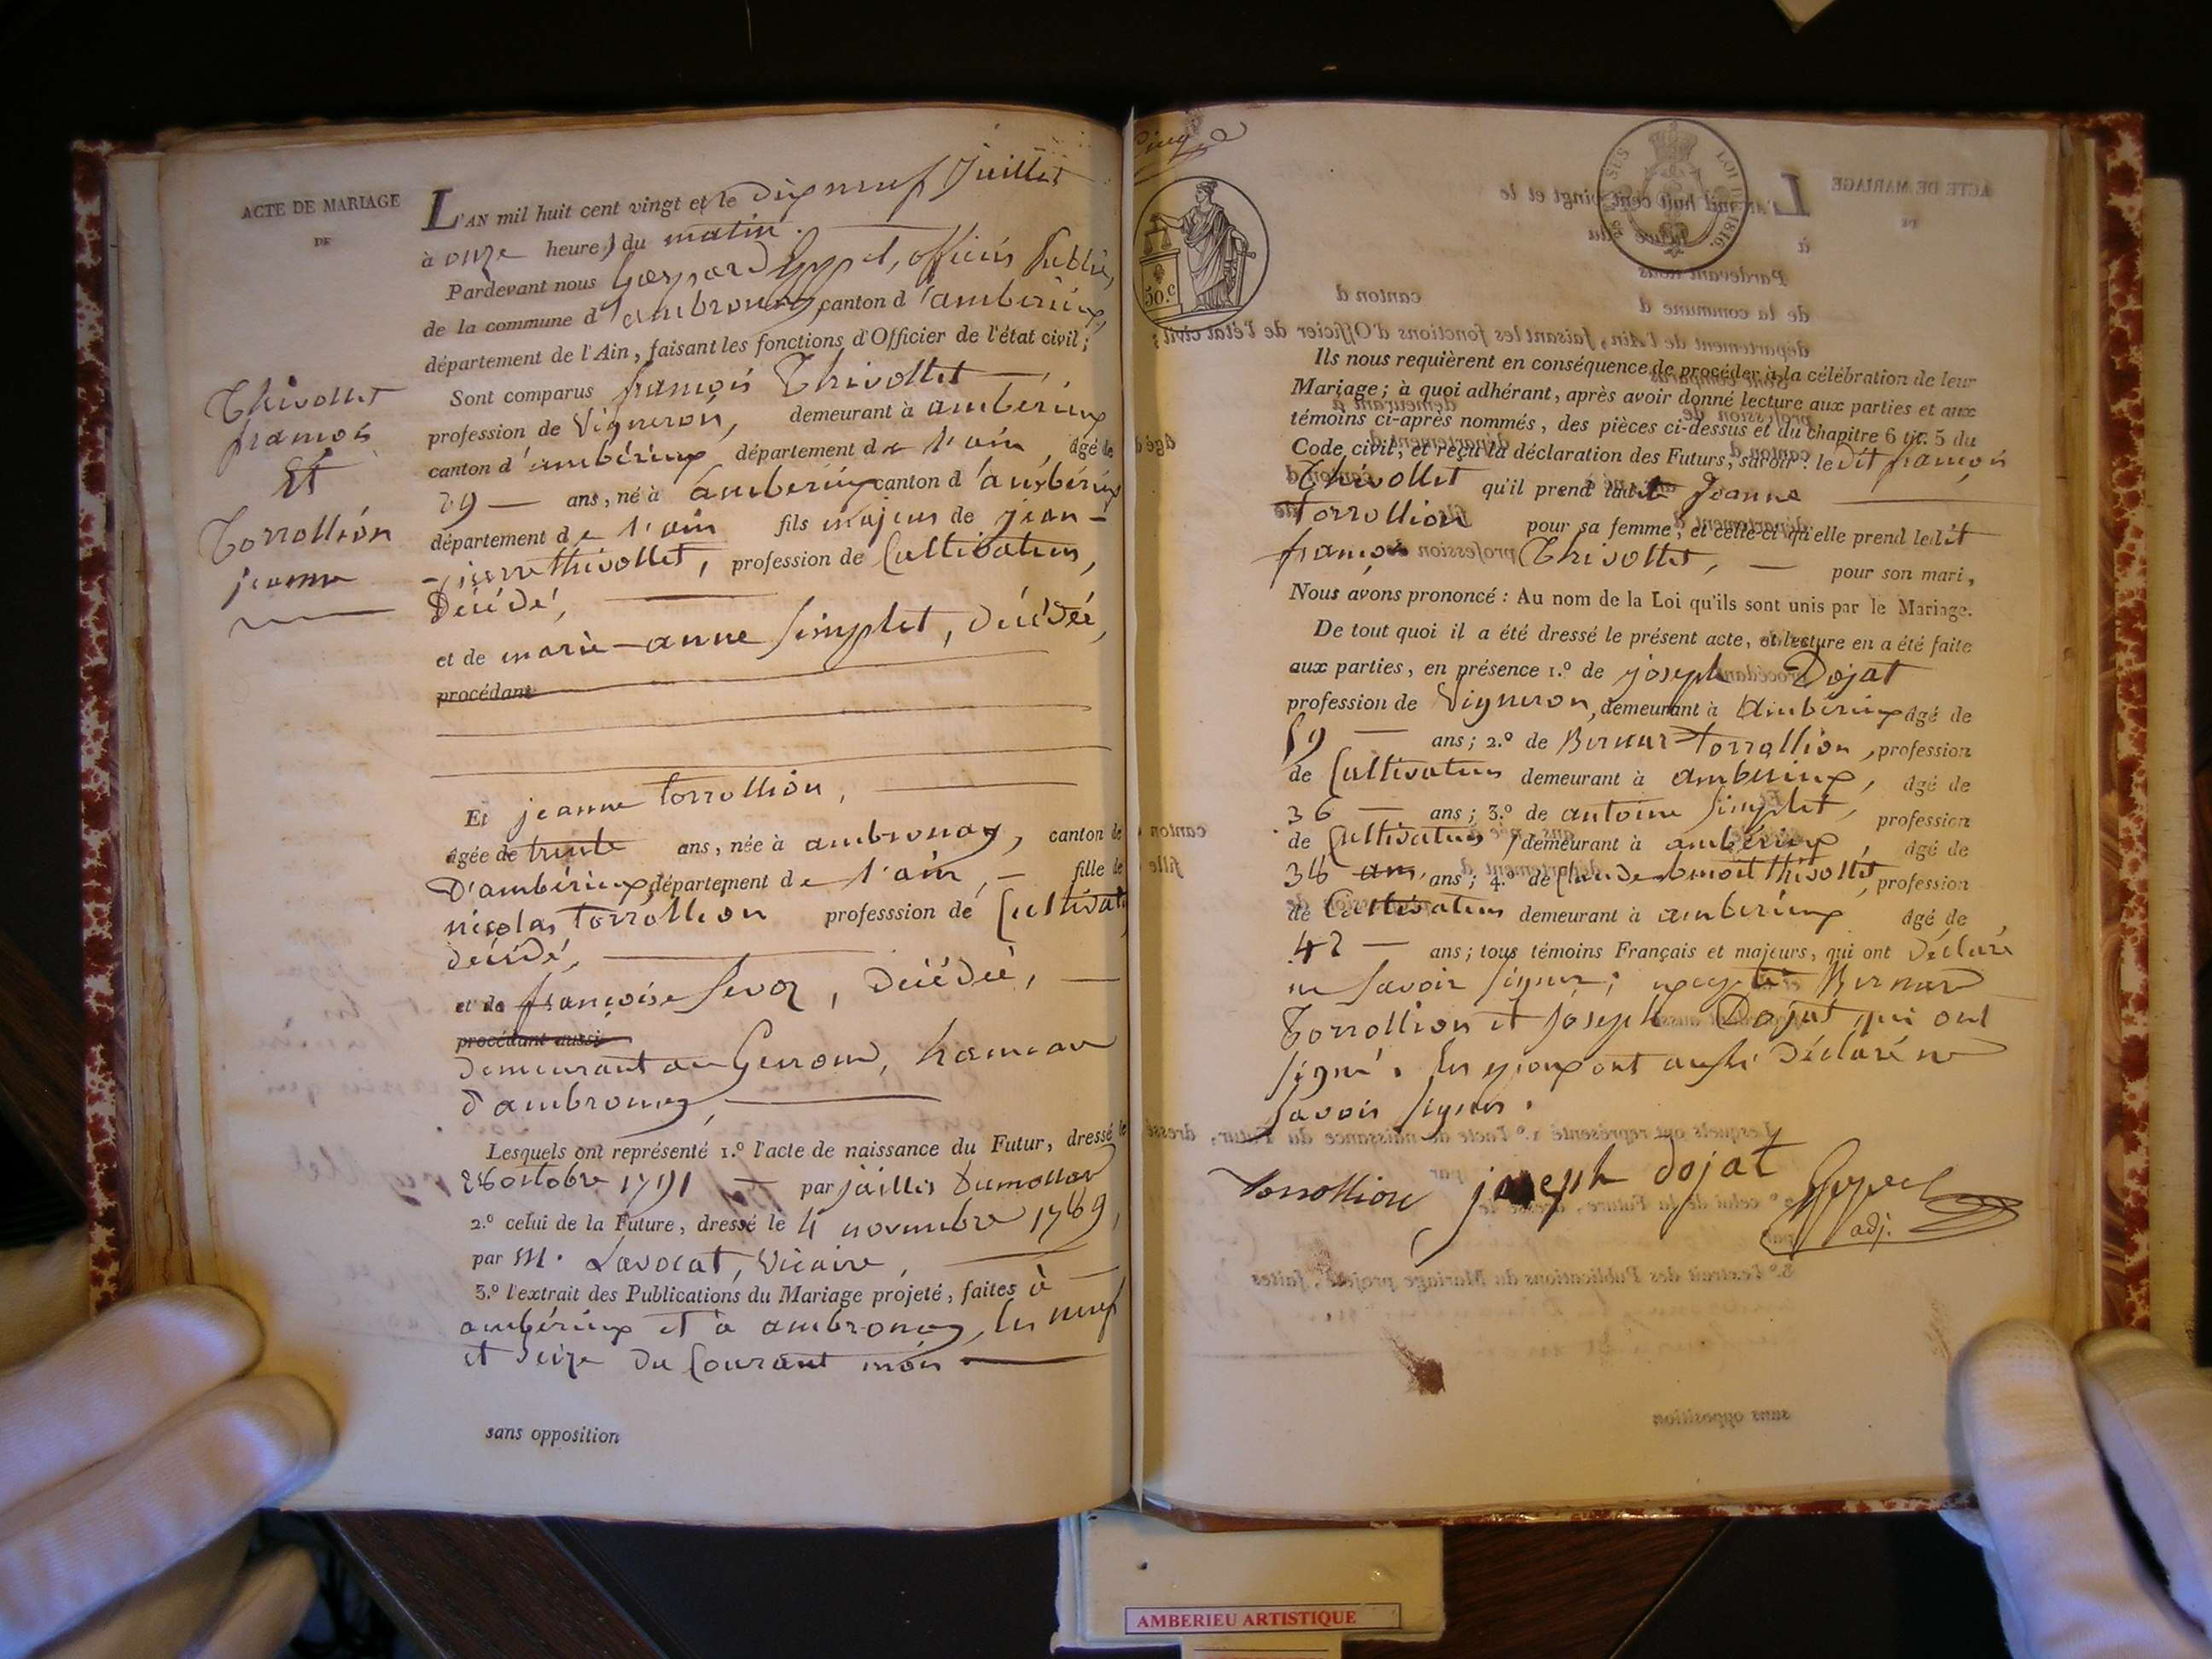 ACTE DE MARIAGE
DE
Thivollet
françois
Et
Torrollion
jeanne
L'AN mil huit cent vingt et le dix neuf Juillet
à onze heures du matin.
Pardevant nous Gaspard officier Public,
de la commune d'ambronay canton d'ambérieux,
département de l'Ain, faisant les fonctions d'Officier de l'état civil;
Sont comparus françois Thivollet
profession de Vigneron, demeurant à ambérieux
canton d'ambérieux département de l'ain, âgé de
29 ans, né à ambérieux canton d'ambérieux
département de l'ain fils majeur de jean-
-pierre thivollet, profession de Cultivateur,
Décédé,
et de marie-anne Simplet, décédée,
procédant
Et jeanne Torrollion,
âgée de trente ans, née à ambronay, canton de
D'ambérieux, département de l'ain, fille de
nicolas Torrollion professsion de Cultivat
décédé,
et de françoise Sevoz, décédée,
procédant aussi
demeurant au Genoud, hameau
d'ambronay,
Lesquels ont représenté 1.º l'acte de naissance du Futur, dressé le
26 octobre 1791 par jaillis Dumollar
2.º celui de la Future, dressé le 4 novembre 1789,
par M. Lavocat, Vicaire,
3.º l'extrait des Publications du Mariage projeté, faites à
ambérieux et à ambronay, les neuf
et seize du Courant mois
sans opposition
50.c
LOUIS
1816.
Ils nous requièrent en conséquence de procéder à la célébration de leur
Mariage; à quoi adhérant, après avoir donné lecture aux parties et aux
témoins ci-après nommés, des pièces ci-dessus et du chapitre 6 tit. 5 du
Code civil, et reçu la déclaration des Futurs, savoir: le dit françois
Thivollet qu'il prend ladite Jeanne
Torrollion pour sa femme, et celle-ci qu'elle prend ledit
françois Thivollet, pour son mari,
Nous avons prononcé: Au nom de la Loi qu'ils sont unis par le Mariage.
De tout quoi il a été dressé le présent acte, et lecture en a été faite
aux parties, en présence 1.º de joseph Dojat
profession de Vigneron, demeurant à Ambérieux âgé de
59 ans; 2.º de Bernard Torrollion, profession
de Cultivateur demeurant à ambérieux, âgé de
36 ans; 3.º de antoine Simplet, profession
de Cultivateur demeurant à ambérieux, âgé de
36 ans, ans; 4.º de Claude benoit thivollet, profession
de Cultivateur demeurant à ambérieux âgé de
42 ans; tous témoins Français et majeurs, qui ont déclaré
ne Savoir Signer; excepté Bernard
Torrollion et Joseph Dojat qui ont
Signé. les epoux ont aussi déclaré ne
Savoir Signer.
torrollion joseph dojat
adj.
AMBERIEU ARTISTIQUE